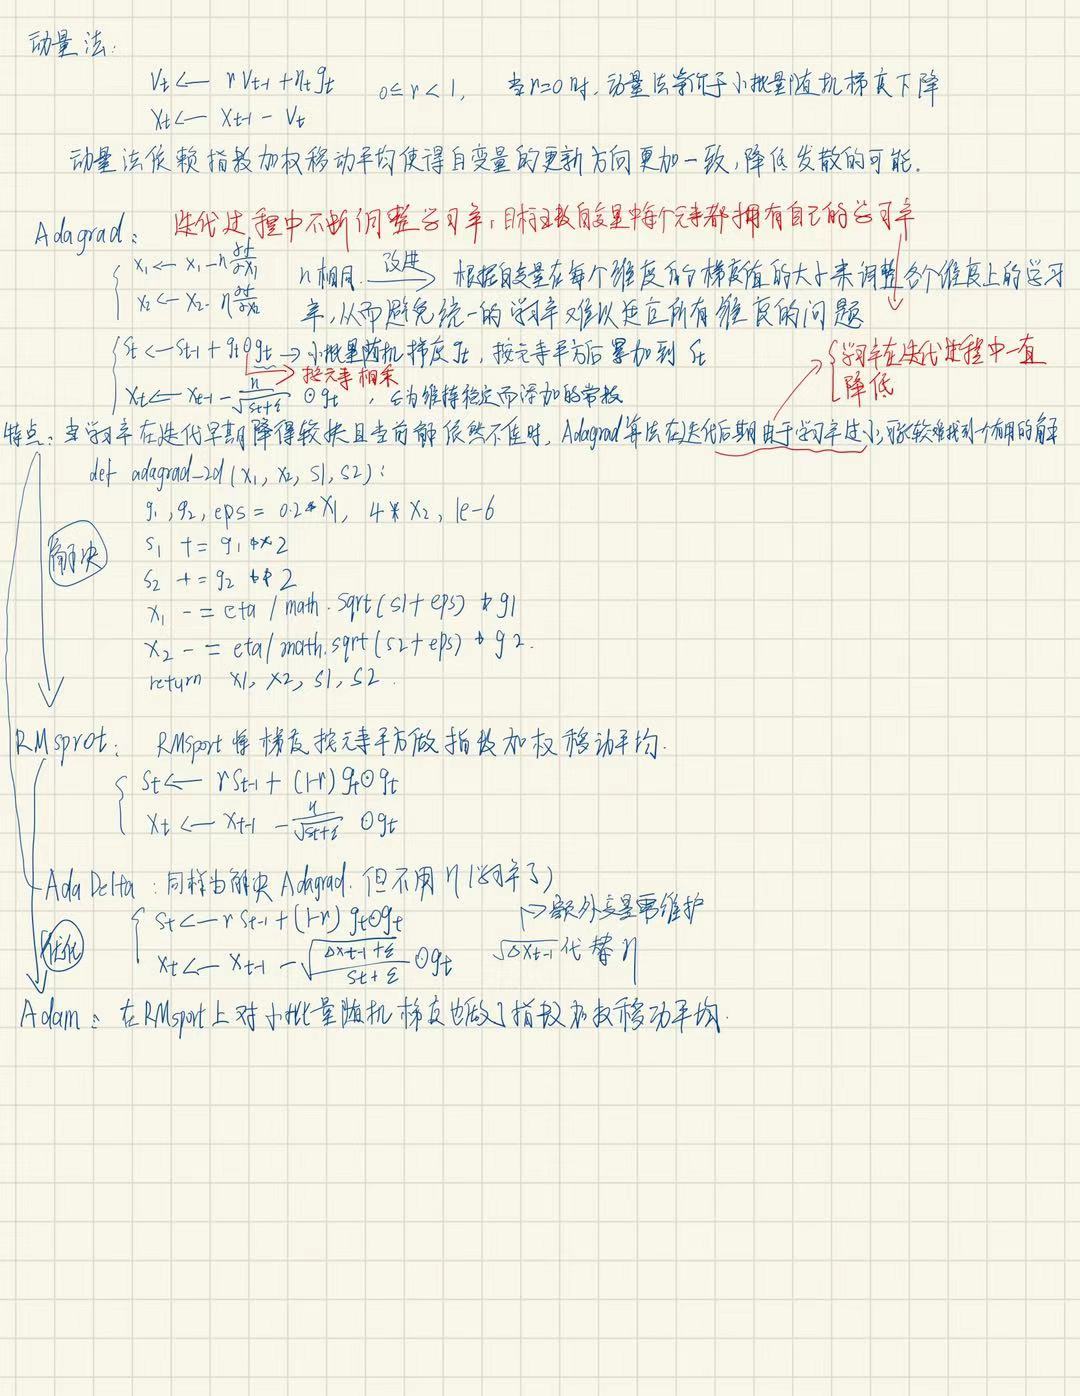 动量法:
Vt ← r Vt-1 + ηt gt    0≤r<1, 当r=0时,动量法等价于小批量随机梯度下降
Xt ← Xt-1 - Vt
动量法依赖指数加权移动平均使得自变量的更新方向更加一致,降低发散的可能.
Adagrad: 迭代过程中不断调整学习率,目标函数自变量中每个元素都拥有自己的学习率
x1 ← x1 - η ∂f/∂x1    η相同. 改进 → 根据自变量在每个维度的梯度值的大小来调整各个维度上的学习
x2 ← x2 - η ∂f/∂x2    率,从而避免统一的学习率难以适应所有维度的问题
St ← St-1 + gt⊙gt → 小批量随机梯度gt, 按元素平方后累加到St
学习率在迭代过程中一直
按元素相乘
降低
Xt ← Xt-1 - η/√(St+ε) ⊙gt , ε为维持稳定而添加的常数
特点: 当学习率在迭代早期降得较快且当前解依然不佳时, Adagrad算法在迭代后期由于学习率过小,可能较难找到一个有用的解
def adagrad_2d(x1, x2, s1, s2):
g1, g2, eps = 0.2*x1, 4*x2, 1e-6
解决
s1 += g1**2
s2 += g2**2
x1 -= eta / math.sqrt(s1+eps) * g1
x2 -= eta / math.sqrt(s2+eps) * g2.
return x1, x2, s1, s2.
RMsprot: RMSport将梯度按元素平方做指数加权移动平均.
St ← rSt-1 + (1-r) gt⊙gt
Xt ← Xt-1 - η/√(St+ε) ⊙gt
AdaDelta: 同样为解决Adagrad. 但不用η(学习率了)
St ← rSt-1 + (1-r) gt⊙gt    → 额外变量需维护
优化
Xt ← Xt-1 - √((ΔXt-1+ε)/(St+ε)) ⊙gt    √ΔXt-1 代替η
Adam: 在RMsport上对小批量随机梯度也做了指数加权移动平均.